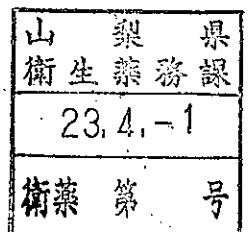 山梨県
衛生薬務課
23.4.-1
衛薬第号